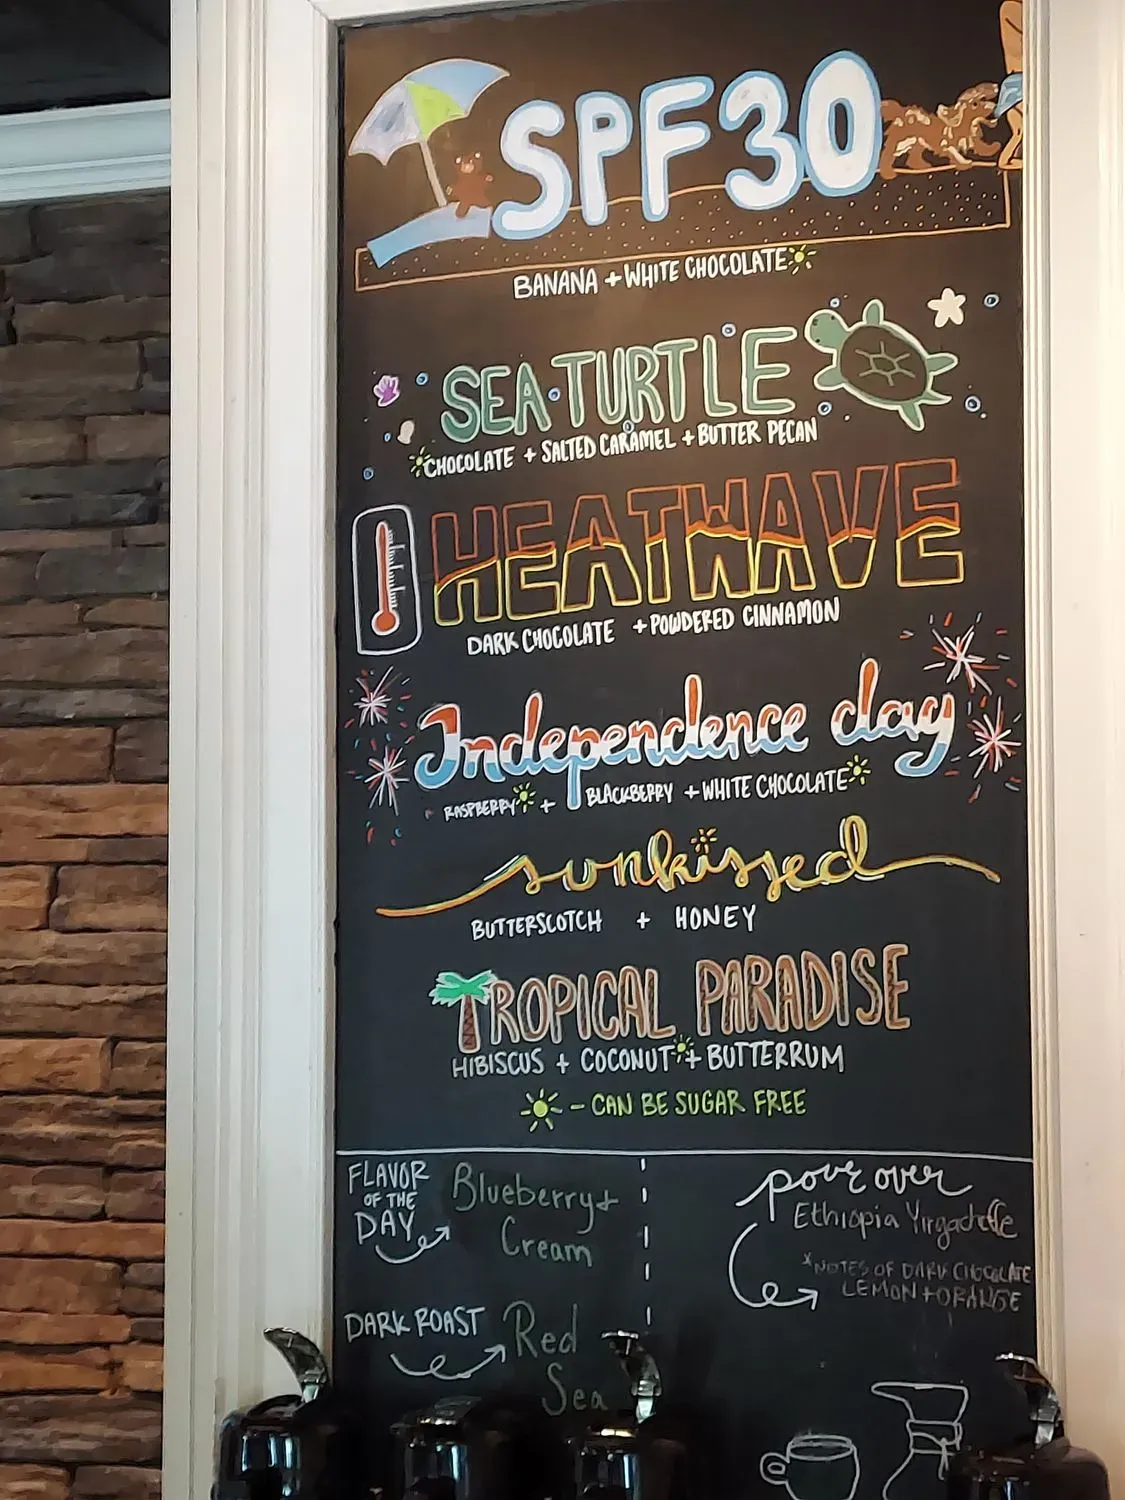 SPF30
BANANA + WHITE CHOCOLATE
SEA TURTLE
CHOCOLATE + SALTED CARAMEL + BUTTER PECAN
HEATWAVE
DARK CHOCOLATE + POWDERED CINNAMON
Independence day
RASPBERRY + BLACKBERRY + WHITE CHOCOLATE
sunkissed
BUTTERSCOTCH + HONEY
TROPICAL PARADISE
HIBISCUS + COCONUT + BUTTERRUM
- CAN BE SUGAR FREE
FLAVOR
OF THE
DAY
Blueberry +
Cream
pour over
Ethiopia Yirgacheffe
*NOTES OF DARK CHOCOLATE
LEMON + ORANGE
DARK ROAST
Red
Sea